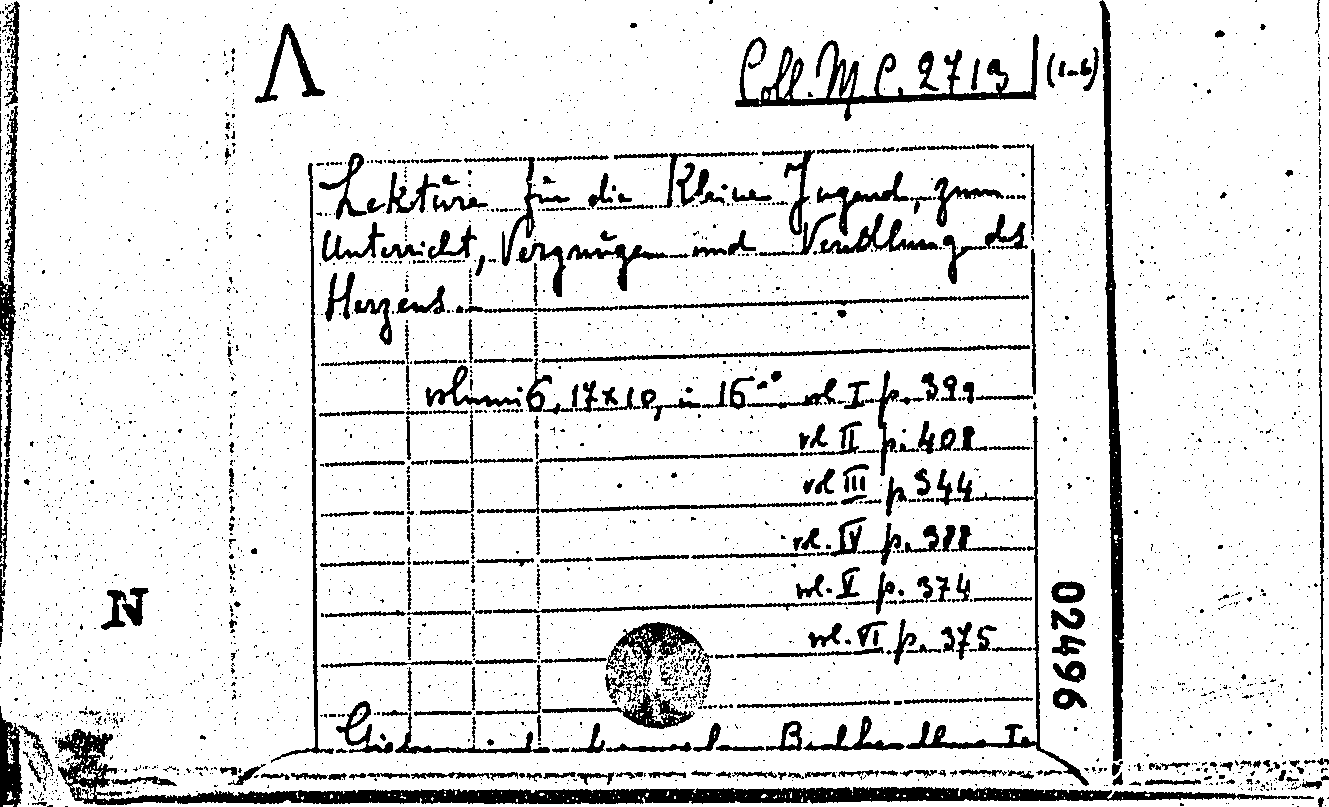 Λ
Coll. M. C. 2713 (1-6)
Lektüre für die Kleine Jugend, zum
Unterricht, Vergnügen und Veredlung des
Herzens...
volumi 6, 17x10, in 16-° vol I p. 399
vol II p. 408
vol III p. 344
vol. IV p. 388
vol. V p. 374
vol. VI p. 375
N
02496